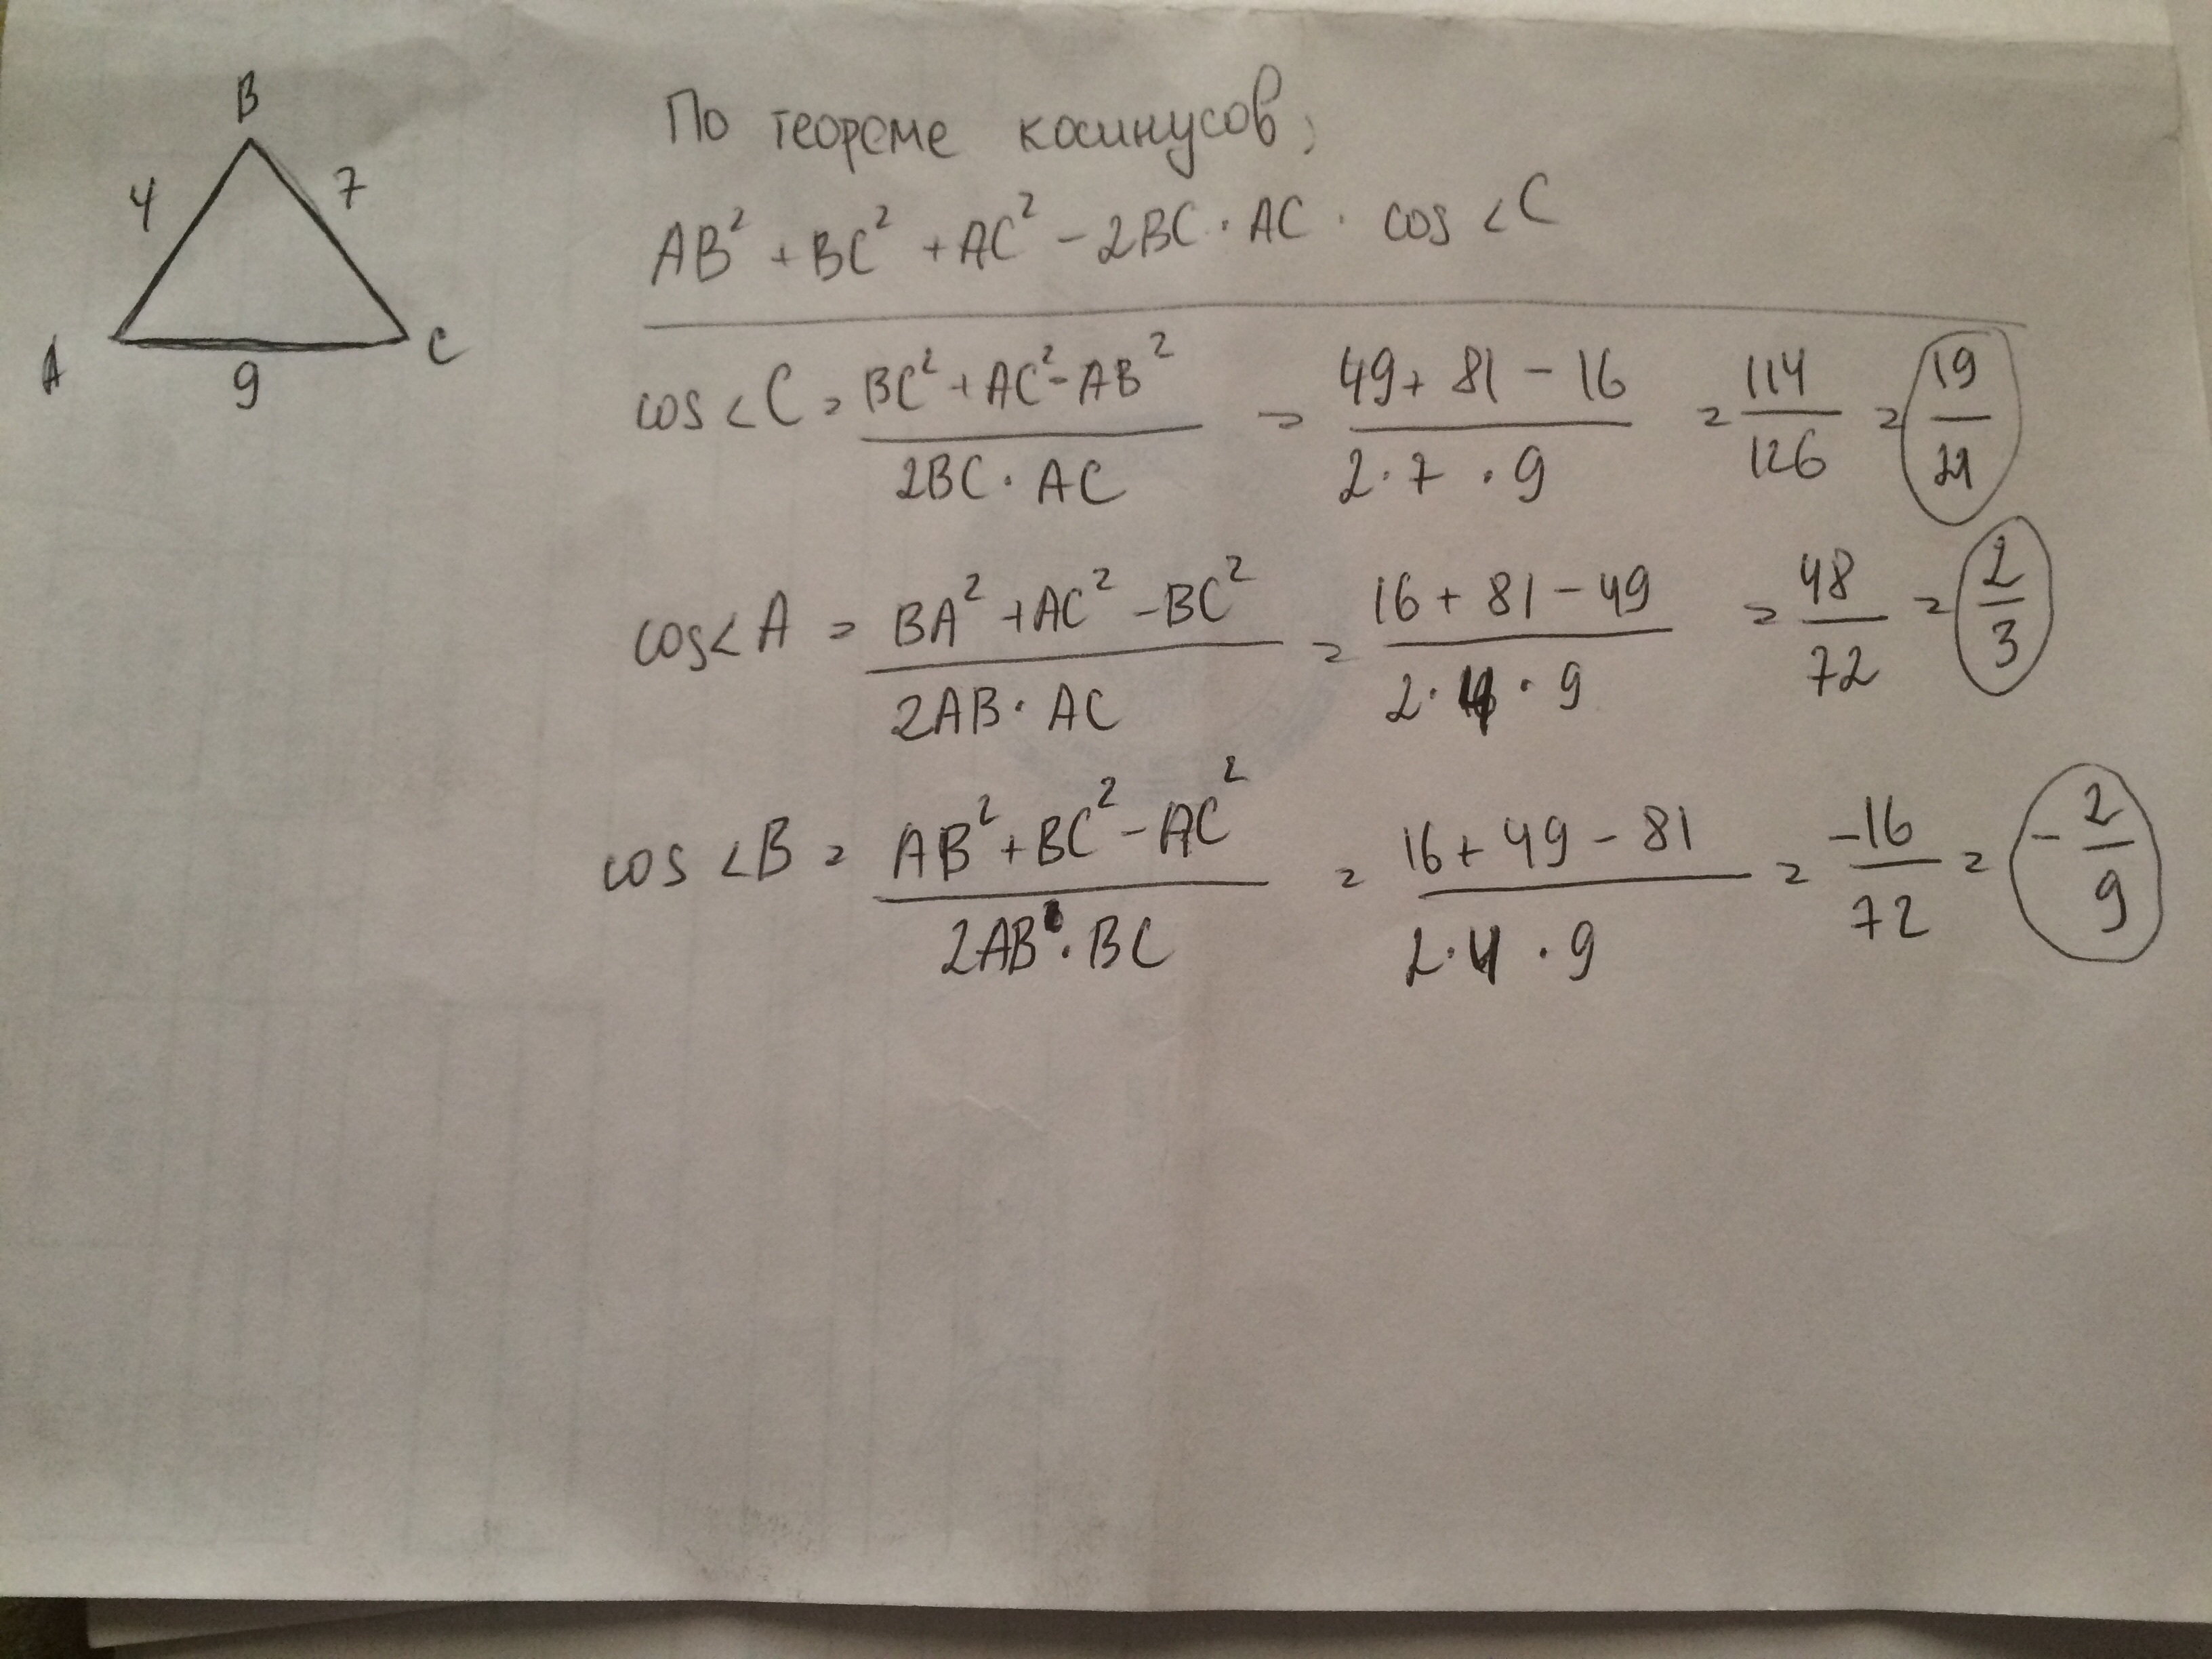 B
4
7
A
9
C
По теореме косинусов;
AB² + BC² + AC² - 2BC · AC · cos < C
cos < C = (BC² + AC² - AB²) / (2BC · AC) = (49 + 81 - 16) / (2 · 7 · 9) = 114/126 = 19/21
cos < A = (BA² + AC² - BC²) / (2AB · AC) = (16 + 81 - 49) / (2 · 4 · 9) = 48/72 = 2/3
cos < B = (AB² + BC² - AC²) / (2AB · BC) = (16 + 49 - 81) / (2 · 4 · 9) = -16/72 = - 2/9